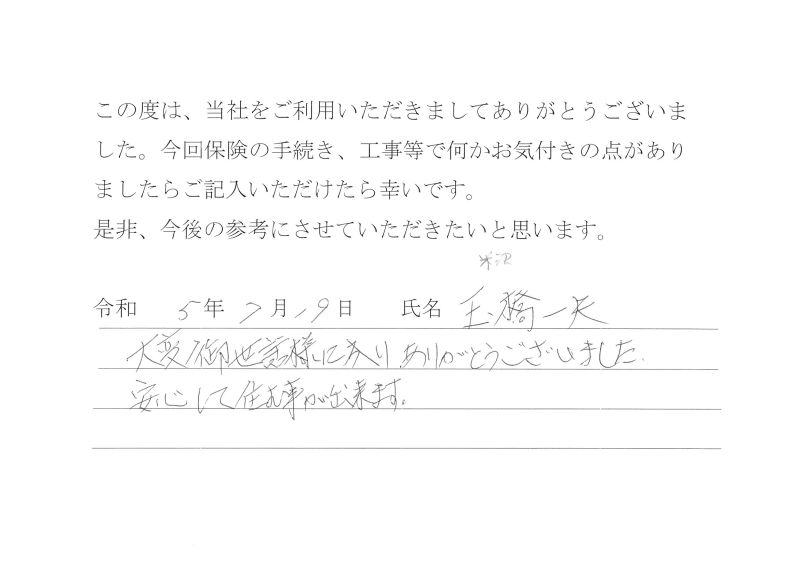 この度は、当社をご利用いただきましてありがとうございま
した。今回保険の手続き、工事等で何かお気付きの点があり
ましたらご記入いただけたら幸いです。
是非、今後の参考にさせていただきたいと思います。
米沢
令和 5年 7月 19日 氏名 玉橋一夫
大変御世話様になりありがとうございました.
安心して住む事が出来ます。